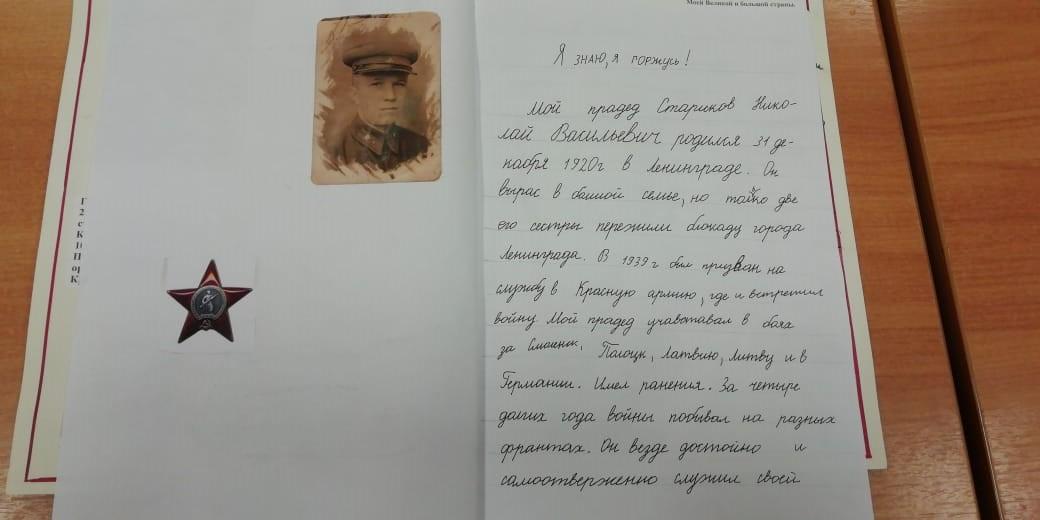 Моей Великой и большой страны.
Я знаю, я горжусь!
Мой прадед Стариков Нико-
лай Васильевич родился 31 де-
кабря 1920г в Ленинграде. Он
вырас в большой семье, но только две
его сестры пережили блокаду города
Ленинграда. В 1939 г был призван на
службу в Красную армию, где и встретил
войну. Мой прадед учавствавал в боях
за Смоленск, Полоцк, Латвию, Литву и в
Германии. Имел ранения. За четыре
долгих года войны побывал на разных
франтах. Он везде достойно и
самоотверженно служил своей